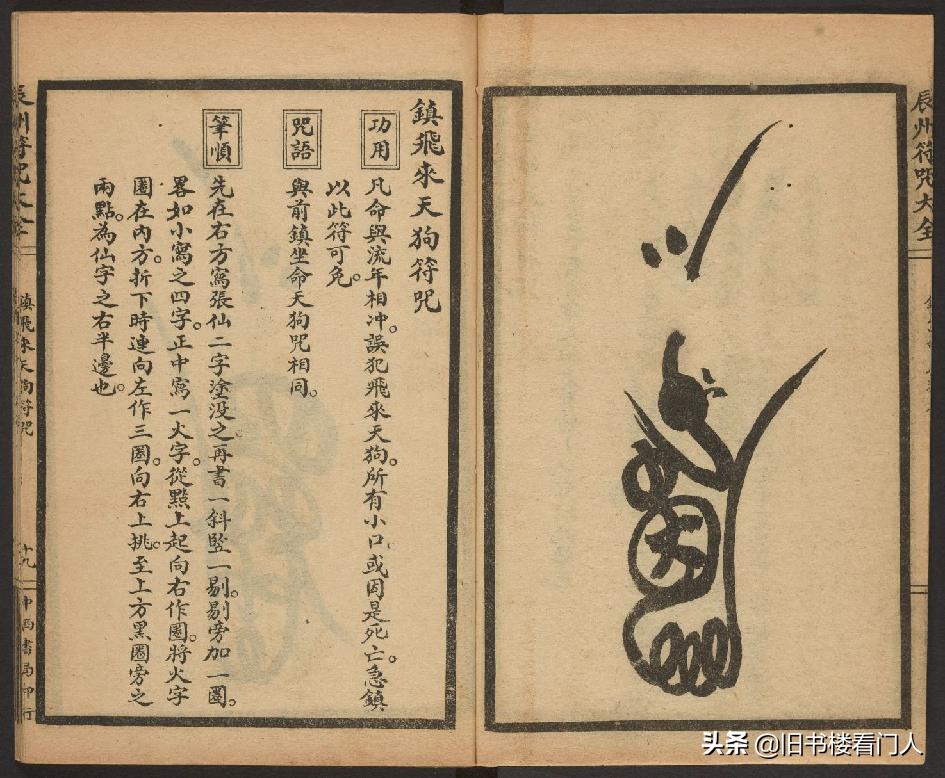 辰州符咒大全
鎮飛來天狗符咒
功用
凡命與流年相冲。誤犯飛來天狗。所有小口或因是死亡。急鎮
以此符可免。
咒語
與前鎮坐命天狗咒相同。
筆順
先在右方寫張仙二字塗没之。再書一斜竪一剔。剔旁加一圈。
畧如小寫之四字。正中寫一火字。從點上起向右作圈。將火字
圈在內方。折下時連向左作三圈。向右上挑。至上方黑圈旁之
兩點。為仙字之右半邊也。
辰州符咒大全
鎮飛來天狗符咒
十九
中西書局印行
头条 @旧书楼看门人